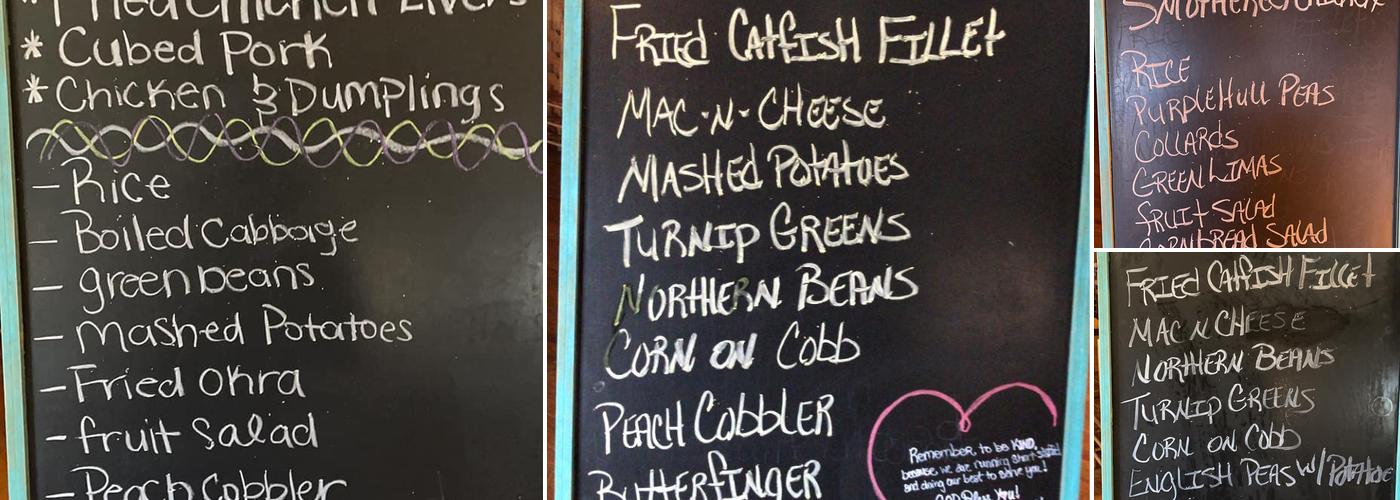 * Fried Chicken Livers
* Cubed Pork
* Chicken & Dumplings
- Rice
- Boiled Cabbage
- green beans
- Mashed Potatoes
- Fried Okra
- fruit Salad
- Peach Cobbler
FRIEd CAtfisH FILLEt
MAC-N-CHEESE
MASHEd POtAtOES
TURNIP GREENS
NORTHERN BEANS
CORN ON Cobb
PEACH CobbLER
BUttERfINGER
Remember, to be KIND,
because we are running short staffed
and doing our best to serve you!
God Bless You!
SMOtHEREd CHICKEN
RICE
PURPLEHull PEAS
COLLARds
GREEN LIMAS
fRUIt SALAd
CORNbREAd SALAd
FRIEd CAtfisH FILLEt
MAC N CHEESE
NORTHERN BEANS
TURNIP GREENS
CORN ON CObb
ENGLISH PEAS W/ POtAtOE